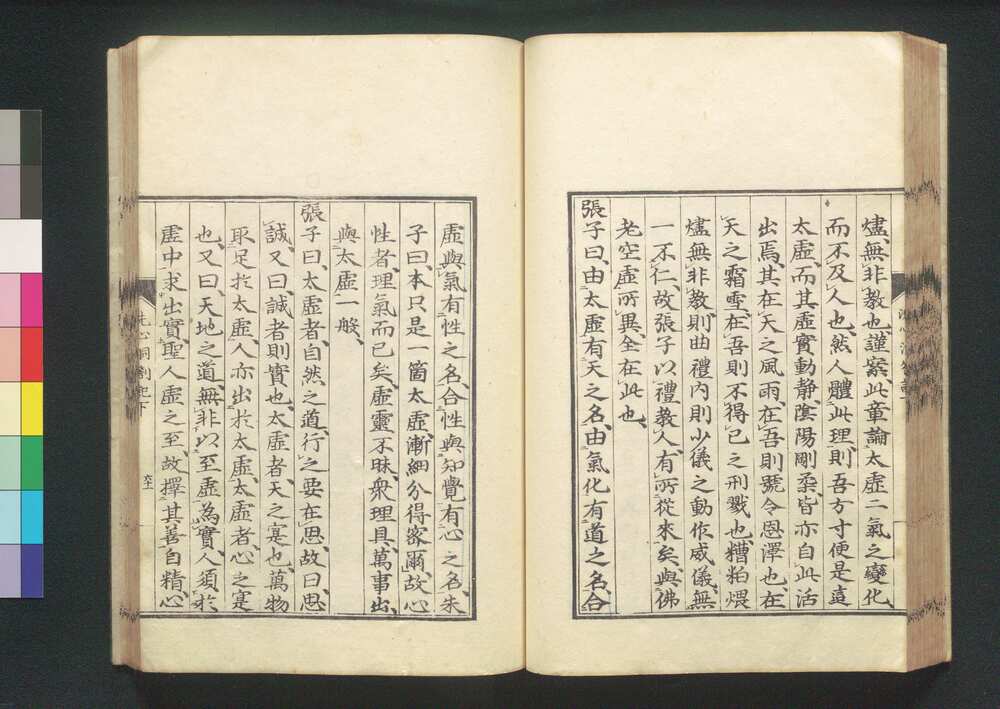 燼無非教也謹案此章論太虛二氣之變化
而不及人也然人體此理則吾方寸便是這
太虛而其虛實動靜陰陽剛柔皆亦自此活
出焉其在天之風雨在吾則號令恩澤也在
天之霜雪在吾則不得已之刑戮也糟粕煨
燼無非教則曲禮內則少儀之動作威儀無
一不仁故張子以禮教人有所從來矣與佛
老空虛所異全在此也
張子曰由太虛有天之名由氣化有道之名合
虛與氣有性之名合性與知覺有心之名朱
子曰本只是一箇太虛漸細分得密爾故心
性者理氣而已矣虛靈不昧衆理具萬事出
與太虛一般
張子曰太虛者自然之道行之要在思故曰思
誠又曰誠者則實也太虛者天之寔也萬物
取足於太虛人亦出於太虛太虛者心之寔
也又曰天地之道無非以至虛為實人須於
虛中求出實聖人虛之至故擇其善自精心
洗心洞劄記下